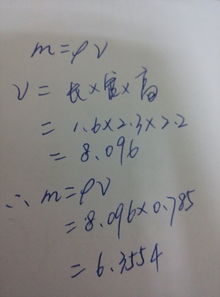 m=ρV
V=长×宽×高
=1.6×2.3×2.2
=8.096
∴m=ρV
=8.096×0.785
=6.3554